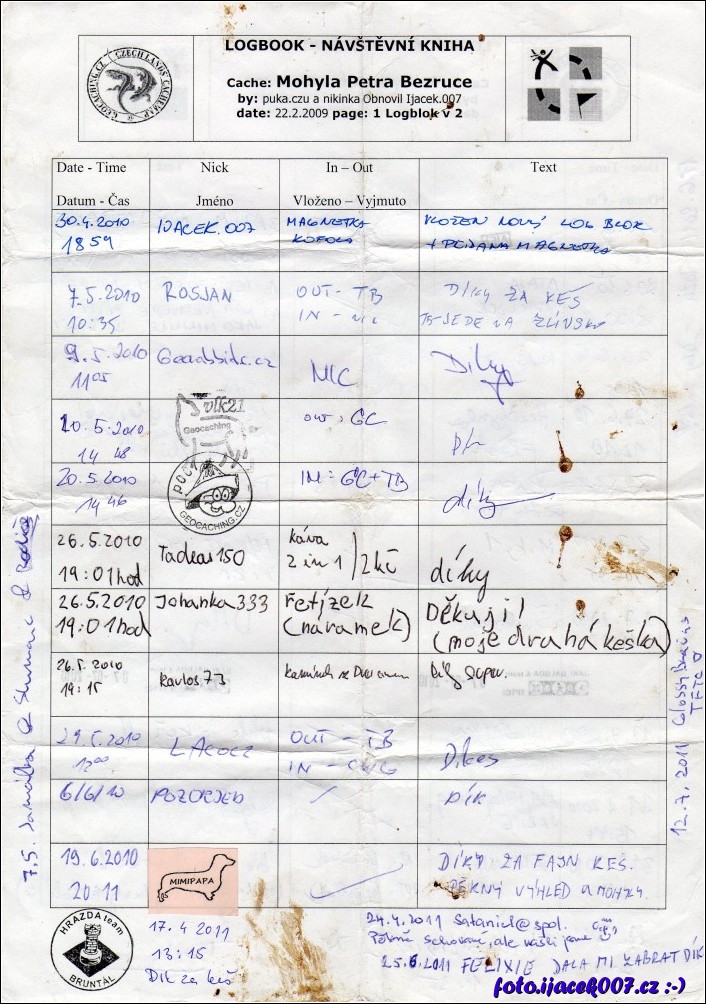 LOGBOOK - NÁVŠTĚVNÍ KNIHA
GEOCACHING.CZ CZECH LANDS CACHEMAP
Cache: Mohyla Petra Bezruce
by: puka.czu a nikinka Obnovil Ijacek.007
date: 22.2.2009 page: 1 Logblok v 2
Date - Time Nick In – Out Text
Datum - Čas Jméno Vloženo – Vyjmuto
30.4.2010 IJACEK.007 MAGNETKA VLOŽEN NOVÝ LOG BLOK
18 59 KOFOLA + PSANA MAGNETKA
7.5.2010 ROSJAN OUT - TB DÍKY ZA KEŠ
10:35 IN - NIC TB JEDE NA ZLÍNSKO
9.5.2010 Díky
11 05 NIC
10.5.2010 vlk21 OUT: GC
14 48 Geocaching
20.5.2010 poc1 IN: GC+TB díky
14 46 GEOCACHING.CZ
26.5.2010 Tadeas150 káva
19:01hod 2 in 1 / 2kč díky
26.5.2010 Johanka333 Řetízek Děkuji!
19:01hod (náramek) (moje druhá keška)
26.5.2010 Karlos73 Díky super.
19:15
29.5.2010 LACOCZ OUT - TB Dikes
12 00 IN - CWG
6/6/10 POZORJED / DÍK
19.6.2010 DÍKY ZA FAJN KEŠ.
20 11 MIMIPAPA PĚKNÝ VÝHLED A MOHYLA.
HRAZDA team
BRUNTÁL
17.4 2011
13:15
Dik za keš
24.4.2011 Sataniel@spol.
Pěkně schované, ale našli jsme
25.6.2011 FELIXIE DALA MI ZABRAT DÍK
7.5.
12.7.2011
TFTC
foto.ijacek007.cz :-)